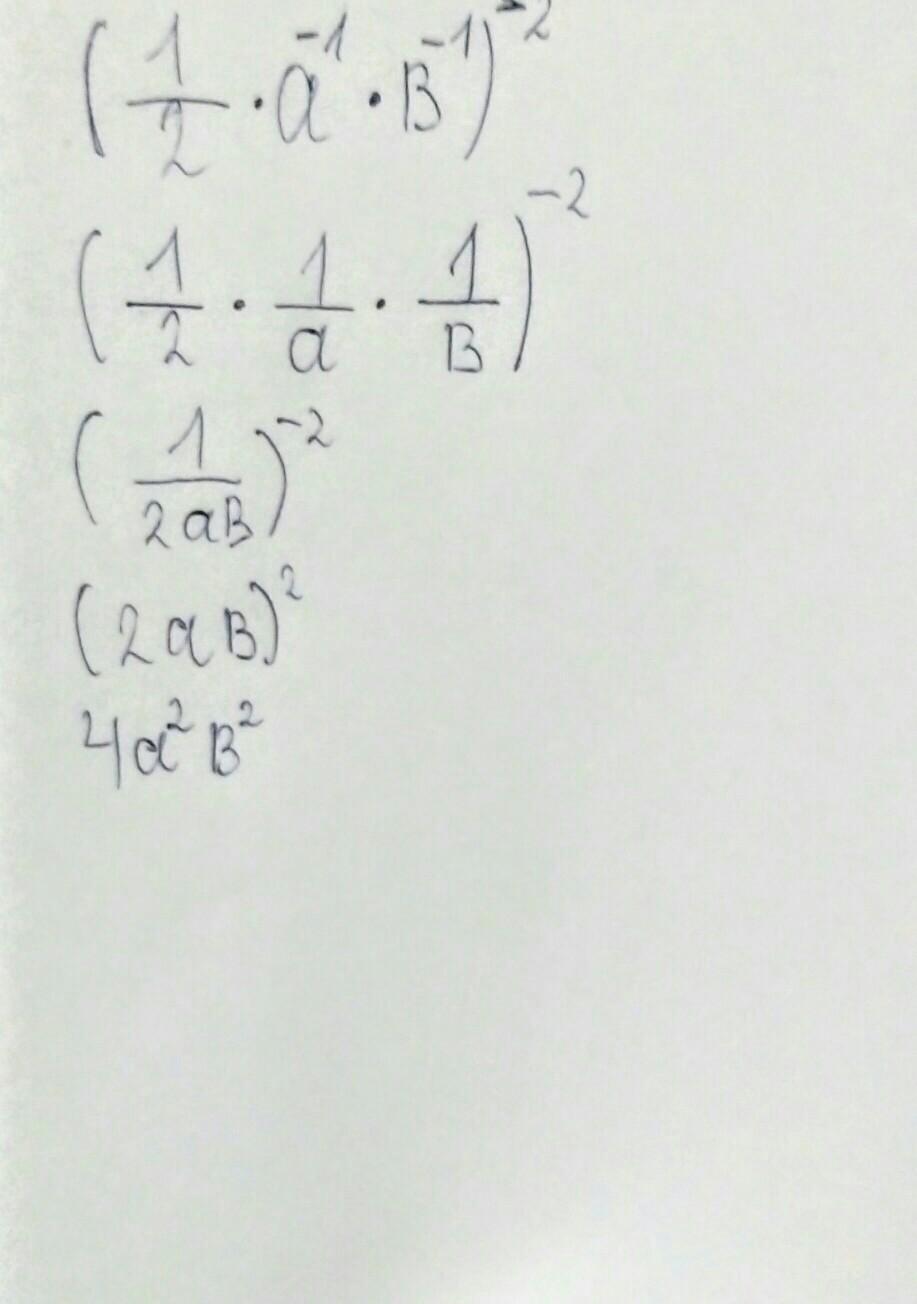 (1/2 · a⁻¹ · B⁻¹)⁻²
(1/2 · 1/a · 1/B)⁻²
(1/2aB)⁻²
(2aB)²
4a²B²